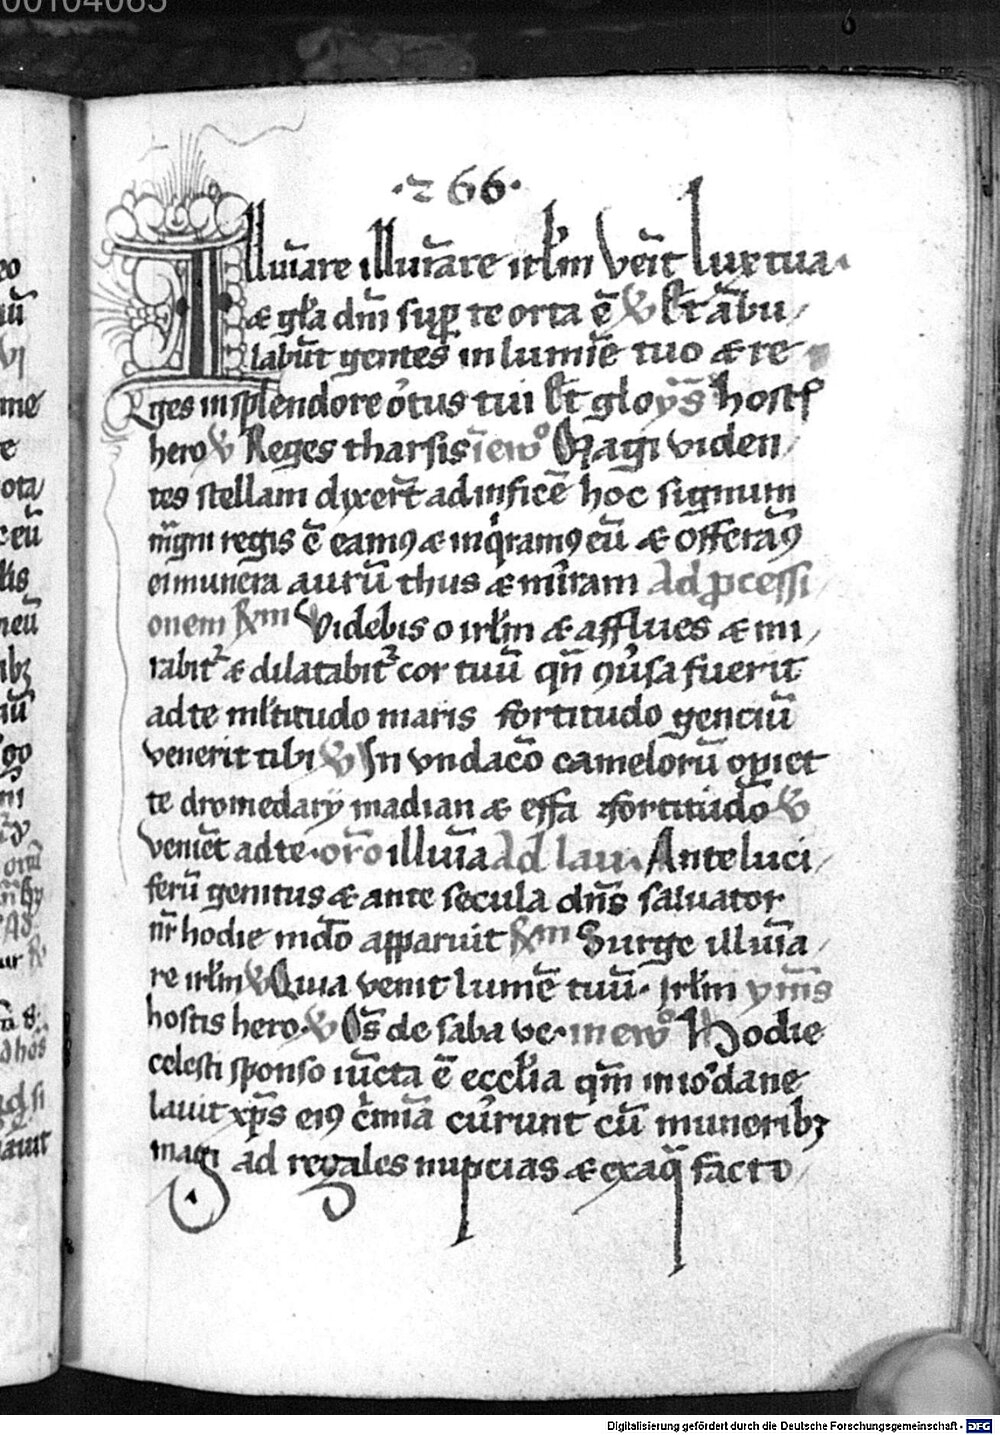 00104065
6
·266·
Illuīare illuīare irłm veīt lux tua·
æ gła dm̄ sup te orta ē ꝟ Et ābu
labūt gentes in lumīe tuo æ re
ges in splendore ortus tui Et glo ys̄ host
hero ꝟ Reges tharsis in ewº Magi viden
tes stellam dixert̄ ad inficē hoc signum
mḡni regis ē eamꝰ æ inqͥramꝰ eū æ offeraꝰ
ei munera aurū thus æ mirram Ad ꝓcessi
onem Rm Videbis o irłm æ afflues æ mi
rabit᷑ æ dilatabit᷑ cor tuū qn̄ ꝯūsa fuerit
ad te mltitudo maris fortitudo genciū
venerit tibi ꝟ In vndacō camelorū opiet
te dromedarÿ madian æ effa fortitudo ꝟ
venīet ad te· oro illuīa Ad lau· Ante luci
ferū genitus æ ante secula dns̄ saluator
nr̄ hodie mdo apparuit Rm Surge illuīa
re irłm ꝟ Quia venit lumē tuū· irłm ymn̄s
hostis hero· ꝟ Os̄ de saba ve· in ewº Hodie
celesti sponso iūcta ē ecclia qm̄ in iordane
lauit xps̄ eiꝰ cͥmīa currunt cū muneribꝫ
magi ad regales nupcias æ ex aq̄ facto
Digitalisierung gefördert durch die Deutsche Forschungsgemeinschaft - DFG